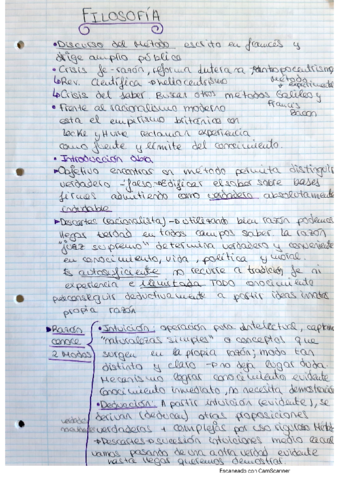 FILOSOFÍA
• Discurso del Método escrito en francés y
dirige amplio público
• Crisis fe-razón, reforma luterana, antropocentrismo
↳ Rev. Científica → heliocentrismo
↳ Crisis del saber Buscar otros metodos Galileo y
Francis
Bacon
• Frente al racionalismo moderno
esta el empirismo británico con
Locke y Hume reclaman experiencia
como fuente y límite del conocimiento.
• Introducción obra
Objetivo encontrar un método permita distinguir
verdadero - falso → edificar el saber sobre bases
firmes admitiendo como verdadero absolutamente
indudable
Descartes (racionalista) → utilizando bien razón podemos
llegar verdad en todos campos saber. La razón
"juez supremo" determina verdadero y conveniente
en conocimiento, vida, política y moral.
Es autosuficiente no recurre a tradición, fe ni
experiencia e ilimitada todo conocimiento
conseguir deductivamente a partir ideas innatas
propia razón
Razón conoce 2 modos
• Intuición: operación pura intelectual, captar
"naturalezas simples" o conceptos que
surgen en la propia razón; modo tan
distinto y claro → no deja lugar duda.
Mecanismo lograr conocimiento evidente
conocimiento inmediato, no necesita demostración
• Deducción: A partir intuición (evidente), se
derivan (deducen) otras proposiciones
verdaderas + complejas por uso riguroso
Descartes → sucesión intuiciones medio
vamos pasando de una a otra verdad evidente
hasta llegar queremos demostrar.
Escaneado con CamScanner